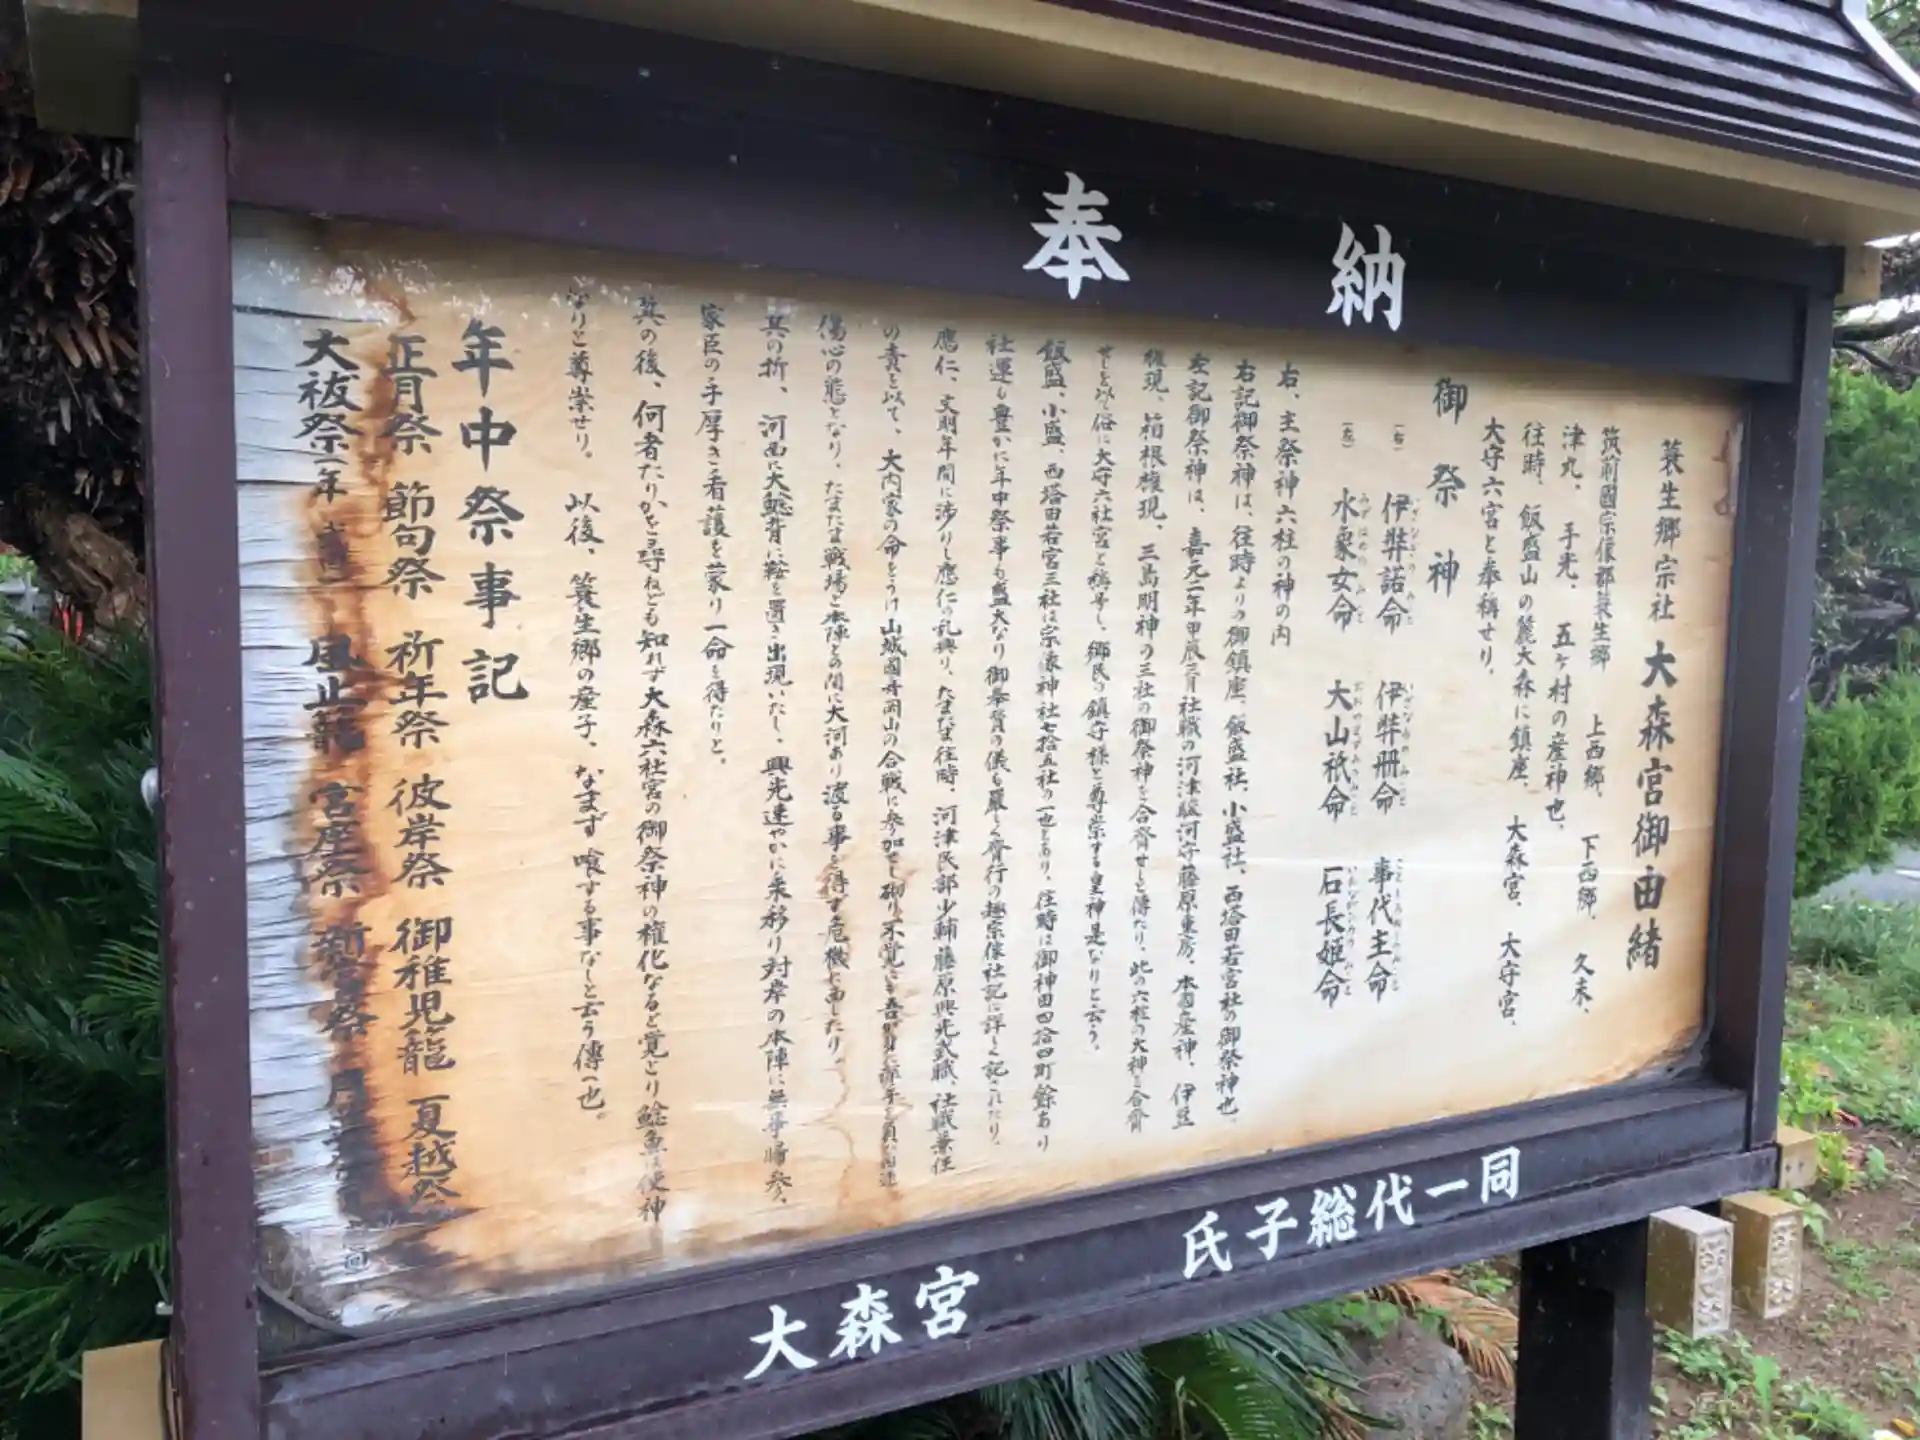 奉納
蓑生郷宗社 大森宮御由緒
筑前國宗像郡蓑生郷 上西郷、下西郷、久末、
津丸、手光、五ヶ村の産神也、
往時、飯盛山の麓大森に鎮座、大森宮、大守宮、
大守六宮と奉稱せり、
御祭神
(右) 伊弉諾命 伊弉册命 事代主命
(左) 水象女命 大山祇命 石長姫命
右、主祭神六柱の神の内
右記御祭神は、往時よりの御鎮座、飯盛社、小盛社、西塔田若宮社の御祭神也、
左記御祭神は、嘉元二年甲辰三月社職の河津駿河守藤原重房、本国産神、伊豆
権現、箱根権現、三島明神の三社の御祭神を合齊せしと傳たり、此の六柱の大神を合齊
せしを以て俗に大守六社宮と稱号し、郷民の鎮守様と尊崇する皇神是なりと云う。
飯盛、小盛、西塔田若宮三社は宗像神社七拾五社の一也とあり、往時は御神田四拾四町餘あり
社運も豊かに年中祭事も盛大なり御奉賛の儀も厳しく齊行の趣宗像社記に詳しく記されたり、
應仁、文明年間に渉りし應仁の乱興り、たまたま往時、河津民部少輔藤原興光武職、社職兼任
の責を以て、大内家の命をうけ山城國舟岡山の合戦に参加せし砌り不覚にも吾が身に
傷心の態となり、たまたま戦場と本陣との間に大河あり渡る事を得ず危機に面したり、
其の折、河面に大鯰背に鞍を置き出現いたし、興光速やかに乗移り対岸の本陣に無事帰参、
家臣の手厚き看護を蒙り一命を得たりと。
其の後、何者たりかを尋ねども知れず大森六社宮の御祭神の権化なると覚とり鯰魚は使神
なりと尊崇せり。以後、蓑生郷の産子、なまず喰する事なしと云う傳へ也。
年中祭事記
正月祭 節句祭 祈年祭 彼岸祭 御稚児籠 夏越祭
大祓祭(年 風止籠 宮座祭 新嘗祭 月
大森宮 氏子総代一同